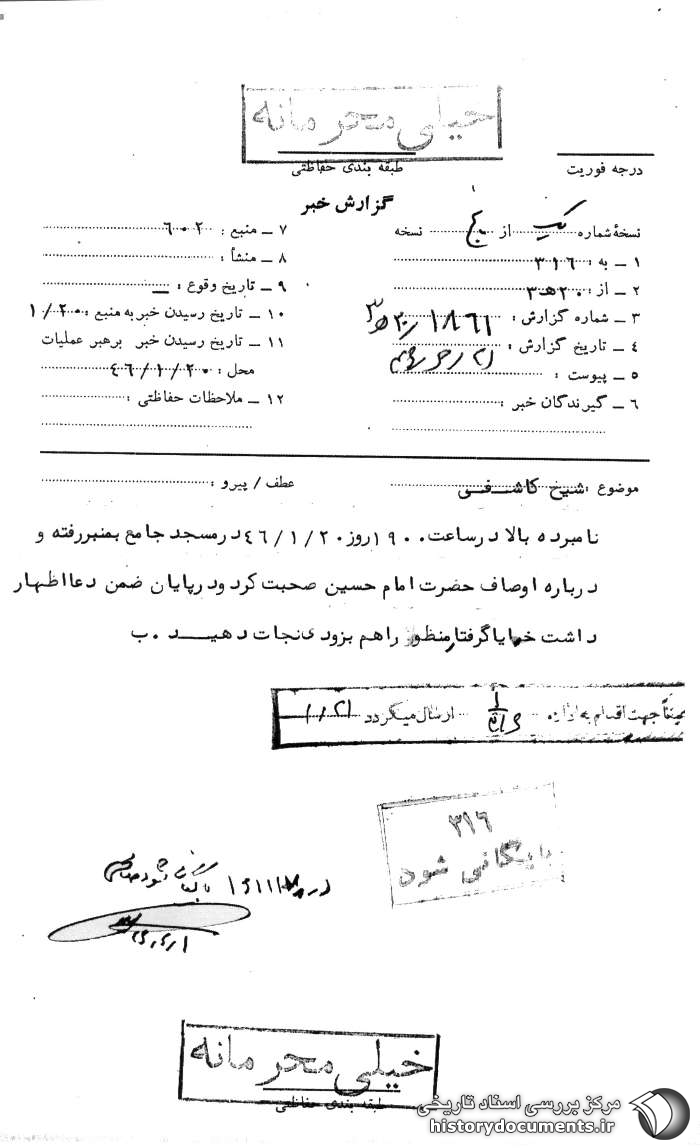 خیلی محرمانه
طبقه بندی حفاظتی
درجه فوریت
گزارش خبر
نسخهٔ شماره یک از پنج نسخه
۱ – به : ۳۱۶
۲ – از : ۲۰ هـ ۳
۳ – شماره گزارش :
۴ – تاریخ گزارش :
۵ – پیوست :
۶ – گیرندگان خبر :
۷ – منبع : ۶۰۲
۸ – منشأ :
۹ – تاریخ وقوع : –
۱۰ – تاریخ رسیدن خبر به منبع : ۱/۲۰
۱۱ – تاریخ رسیدن خبر برهبر عملیات
محل : ۴۶/۱/۲۰
۱۲ – ملاحظات حفاظتی :
موضوع : شیخ کاشفی
عطف / پیرو :
نامبرده بالا درساعت ۱۹۰۰ روز ۴۶/۱/۲۰ درمسجد جامع بمنبررفته و
درباره اوصاف حضرت امام حسین صحبت کرد و درپایان ضمن دعا اظهار
داشت خدایا گرفتار منظور راهم بزودی نجات دهید . ب
عیناً جهت اقدام به اداره ارسال میگردد
۳۱۶
بایگانی شود
خیلی محرمانه
طبقه بندی حفاظتی
مرکز بررسی اسناد تاریخی
historydocuments.ir